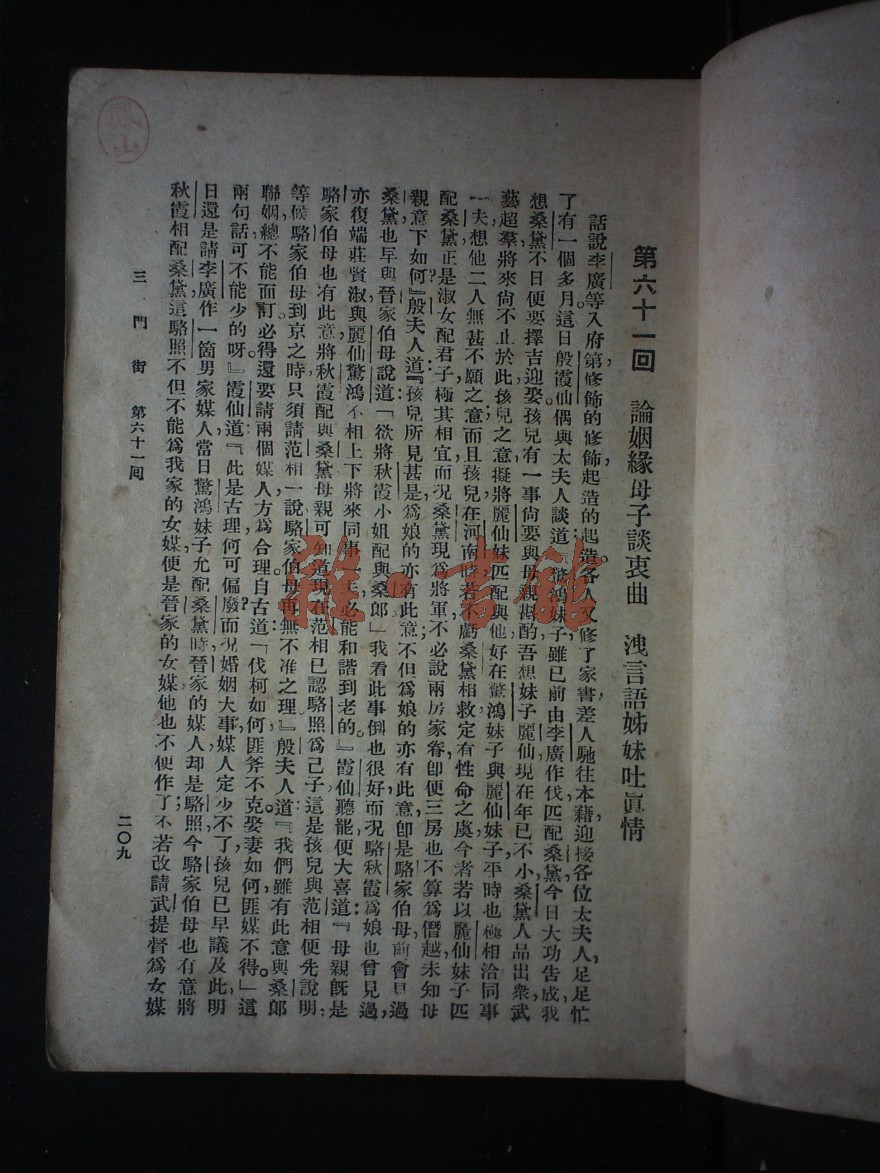 第六十一回　論姻緣母子談衷曲　洩言語姊妹吐眞情
話說李廣等入府第，修飾的修飾，起造的起造。各人又修了家書，差人馳往本藉，迎接各位太夫人，足足忙
了有一個多月。這日殷霞仙偶與太夫人談道：『驚鴻妹子雖已前由李廣作伐匹配桑黛，今日大功告成，我
想桑黛不日便要擇吉迎娶。孩兒有一事尙要與母親斟酌，吾想妹子麗仙，現在年已不小，桑黛人品出衆，武
藝超羣，將來尙不止於此。孩兒之意，擬將麗仙妹匹配與他，好在驚鴻妹子與麗仙妹子，平時也極相洽，同事
一夫，想他二人無甚不願之意。而且孩兒在河南時，若不虧桑黛相救，定有性命之虞，今者若以麗仙妹子匹
配桑黛，正是淑女配君子，極其相宜。而况桑黛現爲將軍，不必說兩房家眷，卽便三房也不算爲僭越，未知母
親意下如何？』殷夫人道：『孩兒所見甚是，爲娘的亦有此意，不但爲娘的亦有此意，卽是駱家伯母，前會見過
桑黛，也早與晉家伯母說道：「欲將秋霞小姐配與桑郎」我看此事倒也很好，而况駱秋霞爲娘也曾見過，
亦復端莊賢淑，與麗仙驚鴻不相上下，將來同事一夫，必能和諧到老的。』霞仙聽罷便大喜道：『母親旣是
駱家伯母也有此意，將秋霞配與桑黛，母親可知道現在范相已認駱照爲己子，這是孩兒與范相便先說明，
等候駱家伯母到京之時，只須請范相一說，駱家伯母再無不准之理。』殷夫人道：『我們雖有此意，與桑郎
聯姻，總不能面訂，必得還要請兩個媒人，方爲合理。自古道：「伐柯如何，匪斧不克。娶妻如何，匪媒不得。」這
兩句話可不能少的呀。』霞仙道：『此是古理，何可偏廢，而况婚姻大事，媒人定少不了，孩兒已早議及此，明
日還是請李廣作一箇男家媒人，當日驚鴻妹子允配桑黛時，晉家的媒人却是駱照，今駱家伯母也有意將
秋霞相配桑黛，這駱照不但不能爲我家的女媒，便是晉家的女媒，他也不便作了，不若改請武提督爲女媒
三門街　第六十一回
二〇九
鳳山
雅·書館